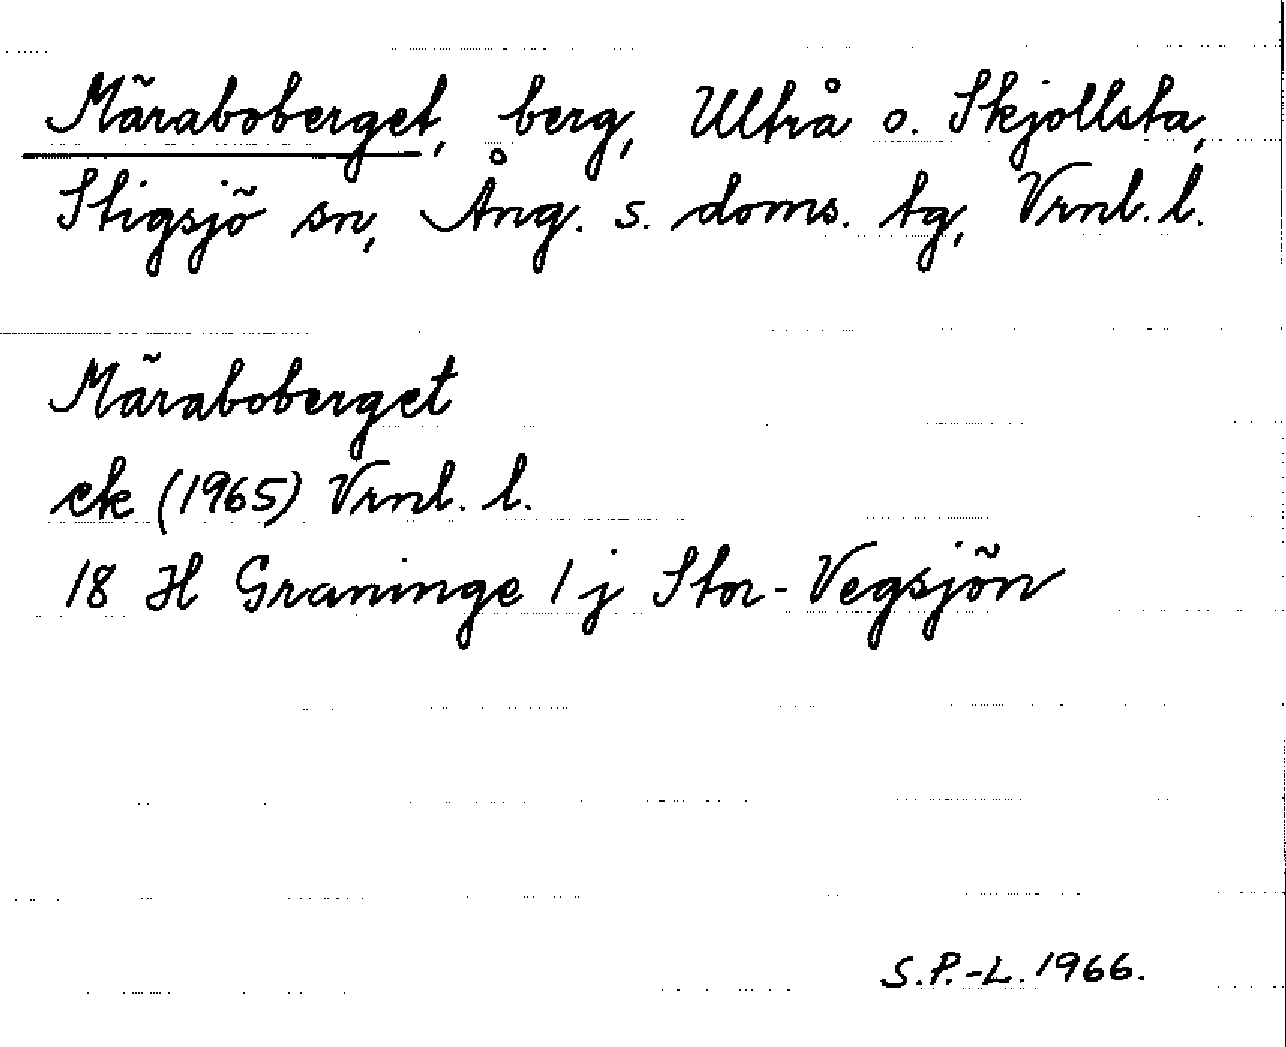 Märaboberget, berg, Ultrå o. Skjollsta,
Stigsjö sn, Ång. s. doms. tg, Vrnl. l.
Märaboberget
ek (1965) Vrnl. l.
18 H Graninge 1 j Stor-Vegsjön
S.P.-L. 1966.